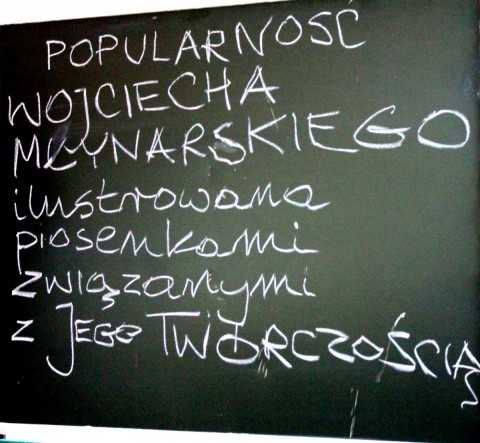 POPULARNOŚĆ
WOJCIECHA
MŁYNARSKIEGO
ilustrowana
piosenkami
związanymi
z JEGO TWÓRCZOŚCIĄ